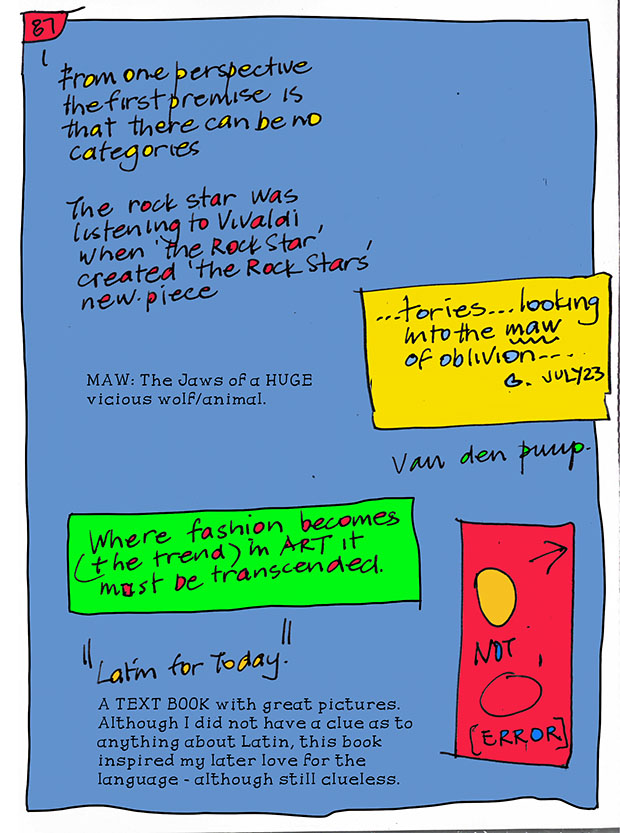 87
From one perspective
the first premise is
that there can be no
categories
The rock star was
listening to Vivaldi
when 'the Rock Star',
created 'the Rock Stars'
new piece
...tories...looking
into the maw
of oblivion----
G. JULY23
MAW: The Jaws of a HUGE
vicious wolf/animal.
Van den puup.
Where fashion becomes
(the trend) in ART it
must be transcended.
"Latin for Today."
A TEXT BOOK with great pictures.
Although I did not have a clue as to
anything about Latin, this book
inspired my later love for the
language - although still clueless.
NOT
[ERROR]